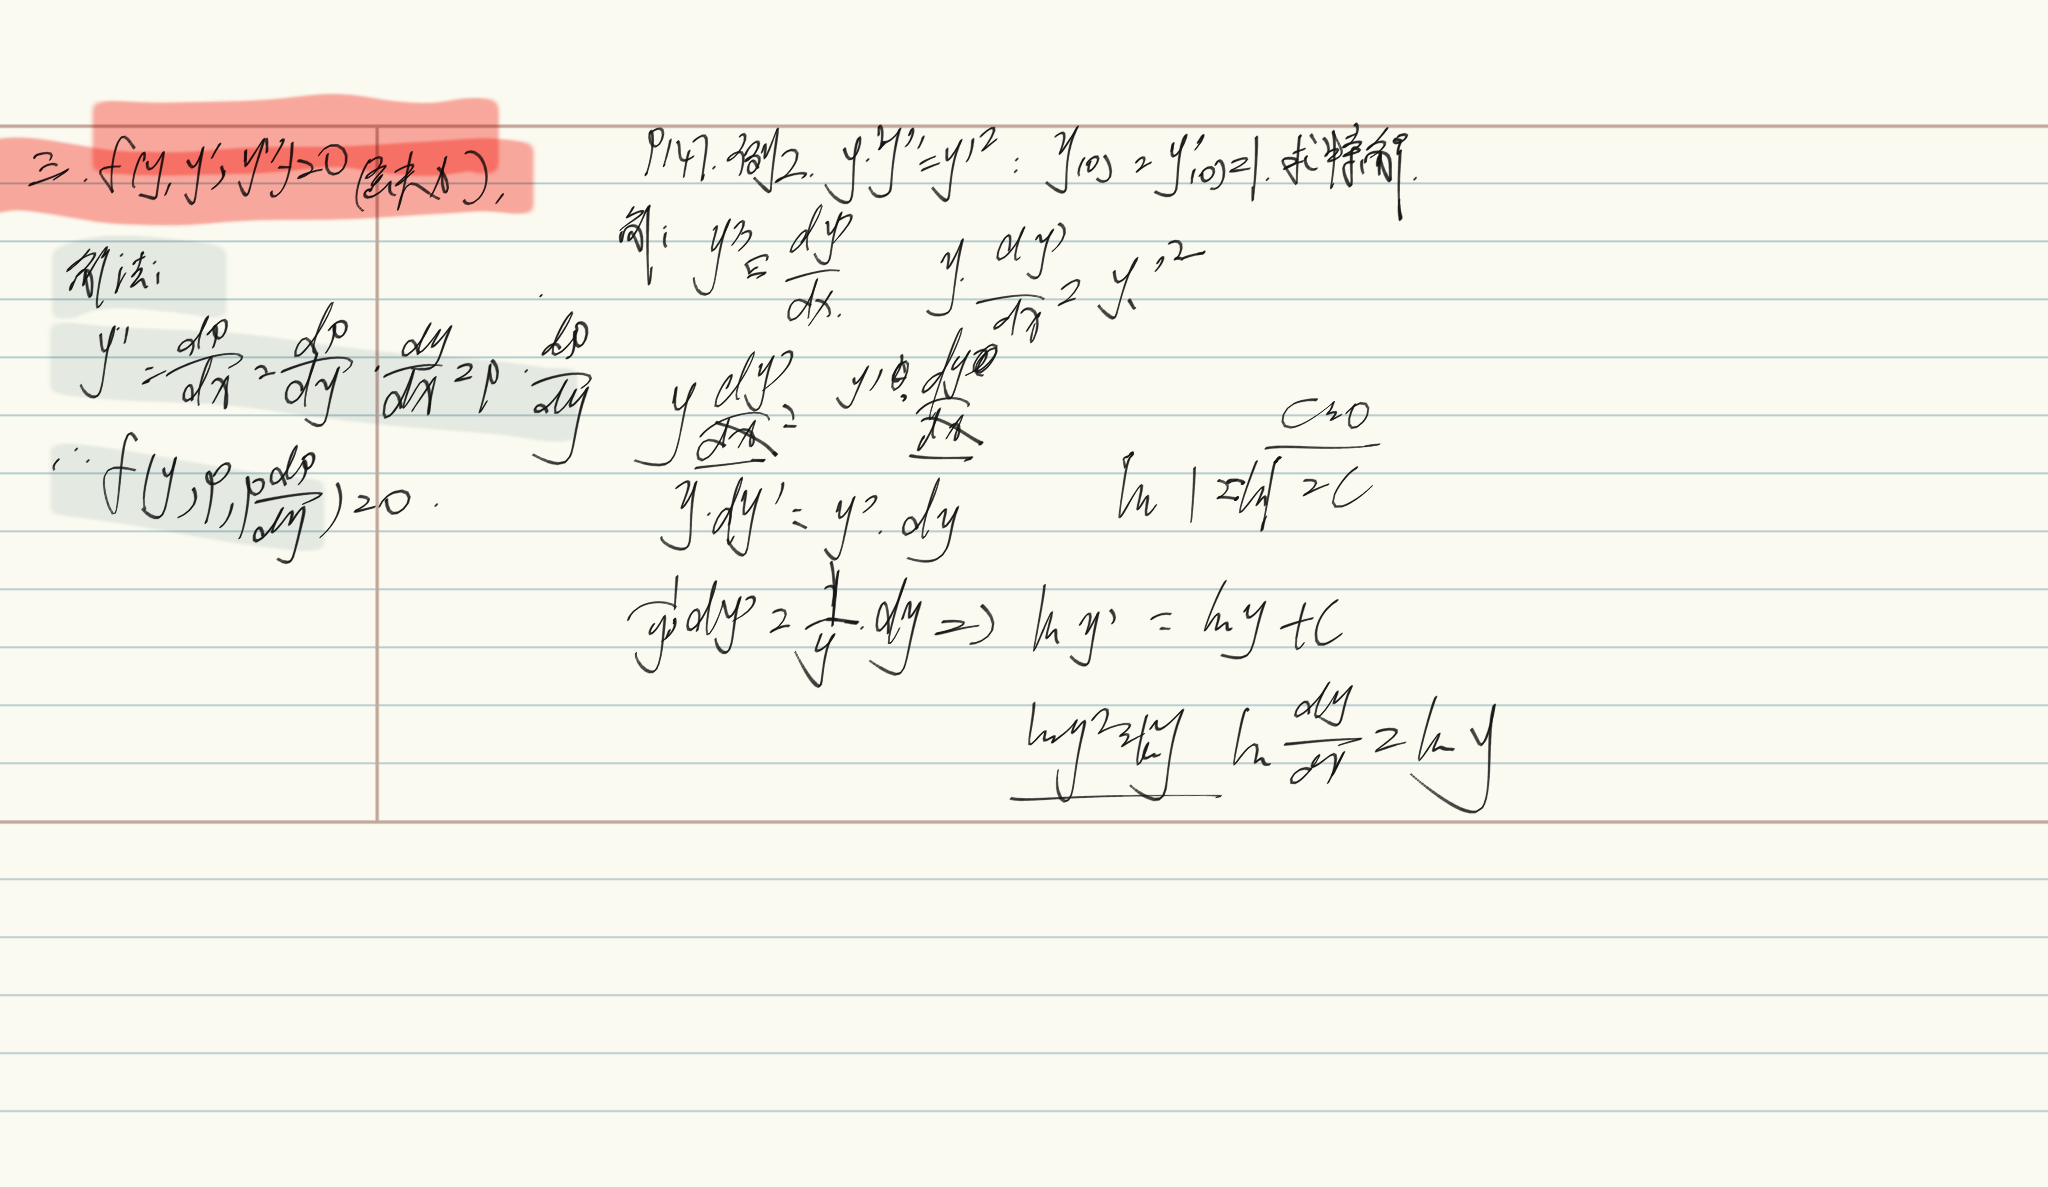 三. f(y, y', y'')=0 (缺x).
解法:
y'' = dp/dx = dp/dy · dy/dx = p · dp/dy
∴ f(y, p, p dp/dy) = 0.
P147. 2. y·y''=y'^2 : y(0) = y'(0)=1. 求特解.
解: y'' = dy'/dx. y· dy'/dx = y'^2
y dy'/dx = y' · dy/dx
y·dy' = y'·dy
1/y' dy' = 1/y · dy => ln y' = ln y + C
ln dy/dx = ln y
C=0
ln |1| = C